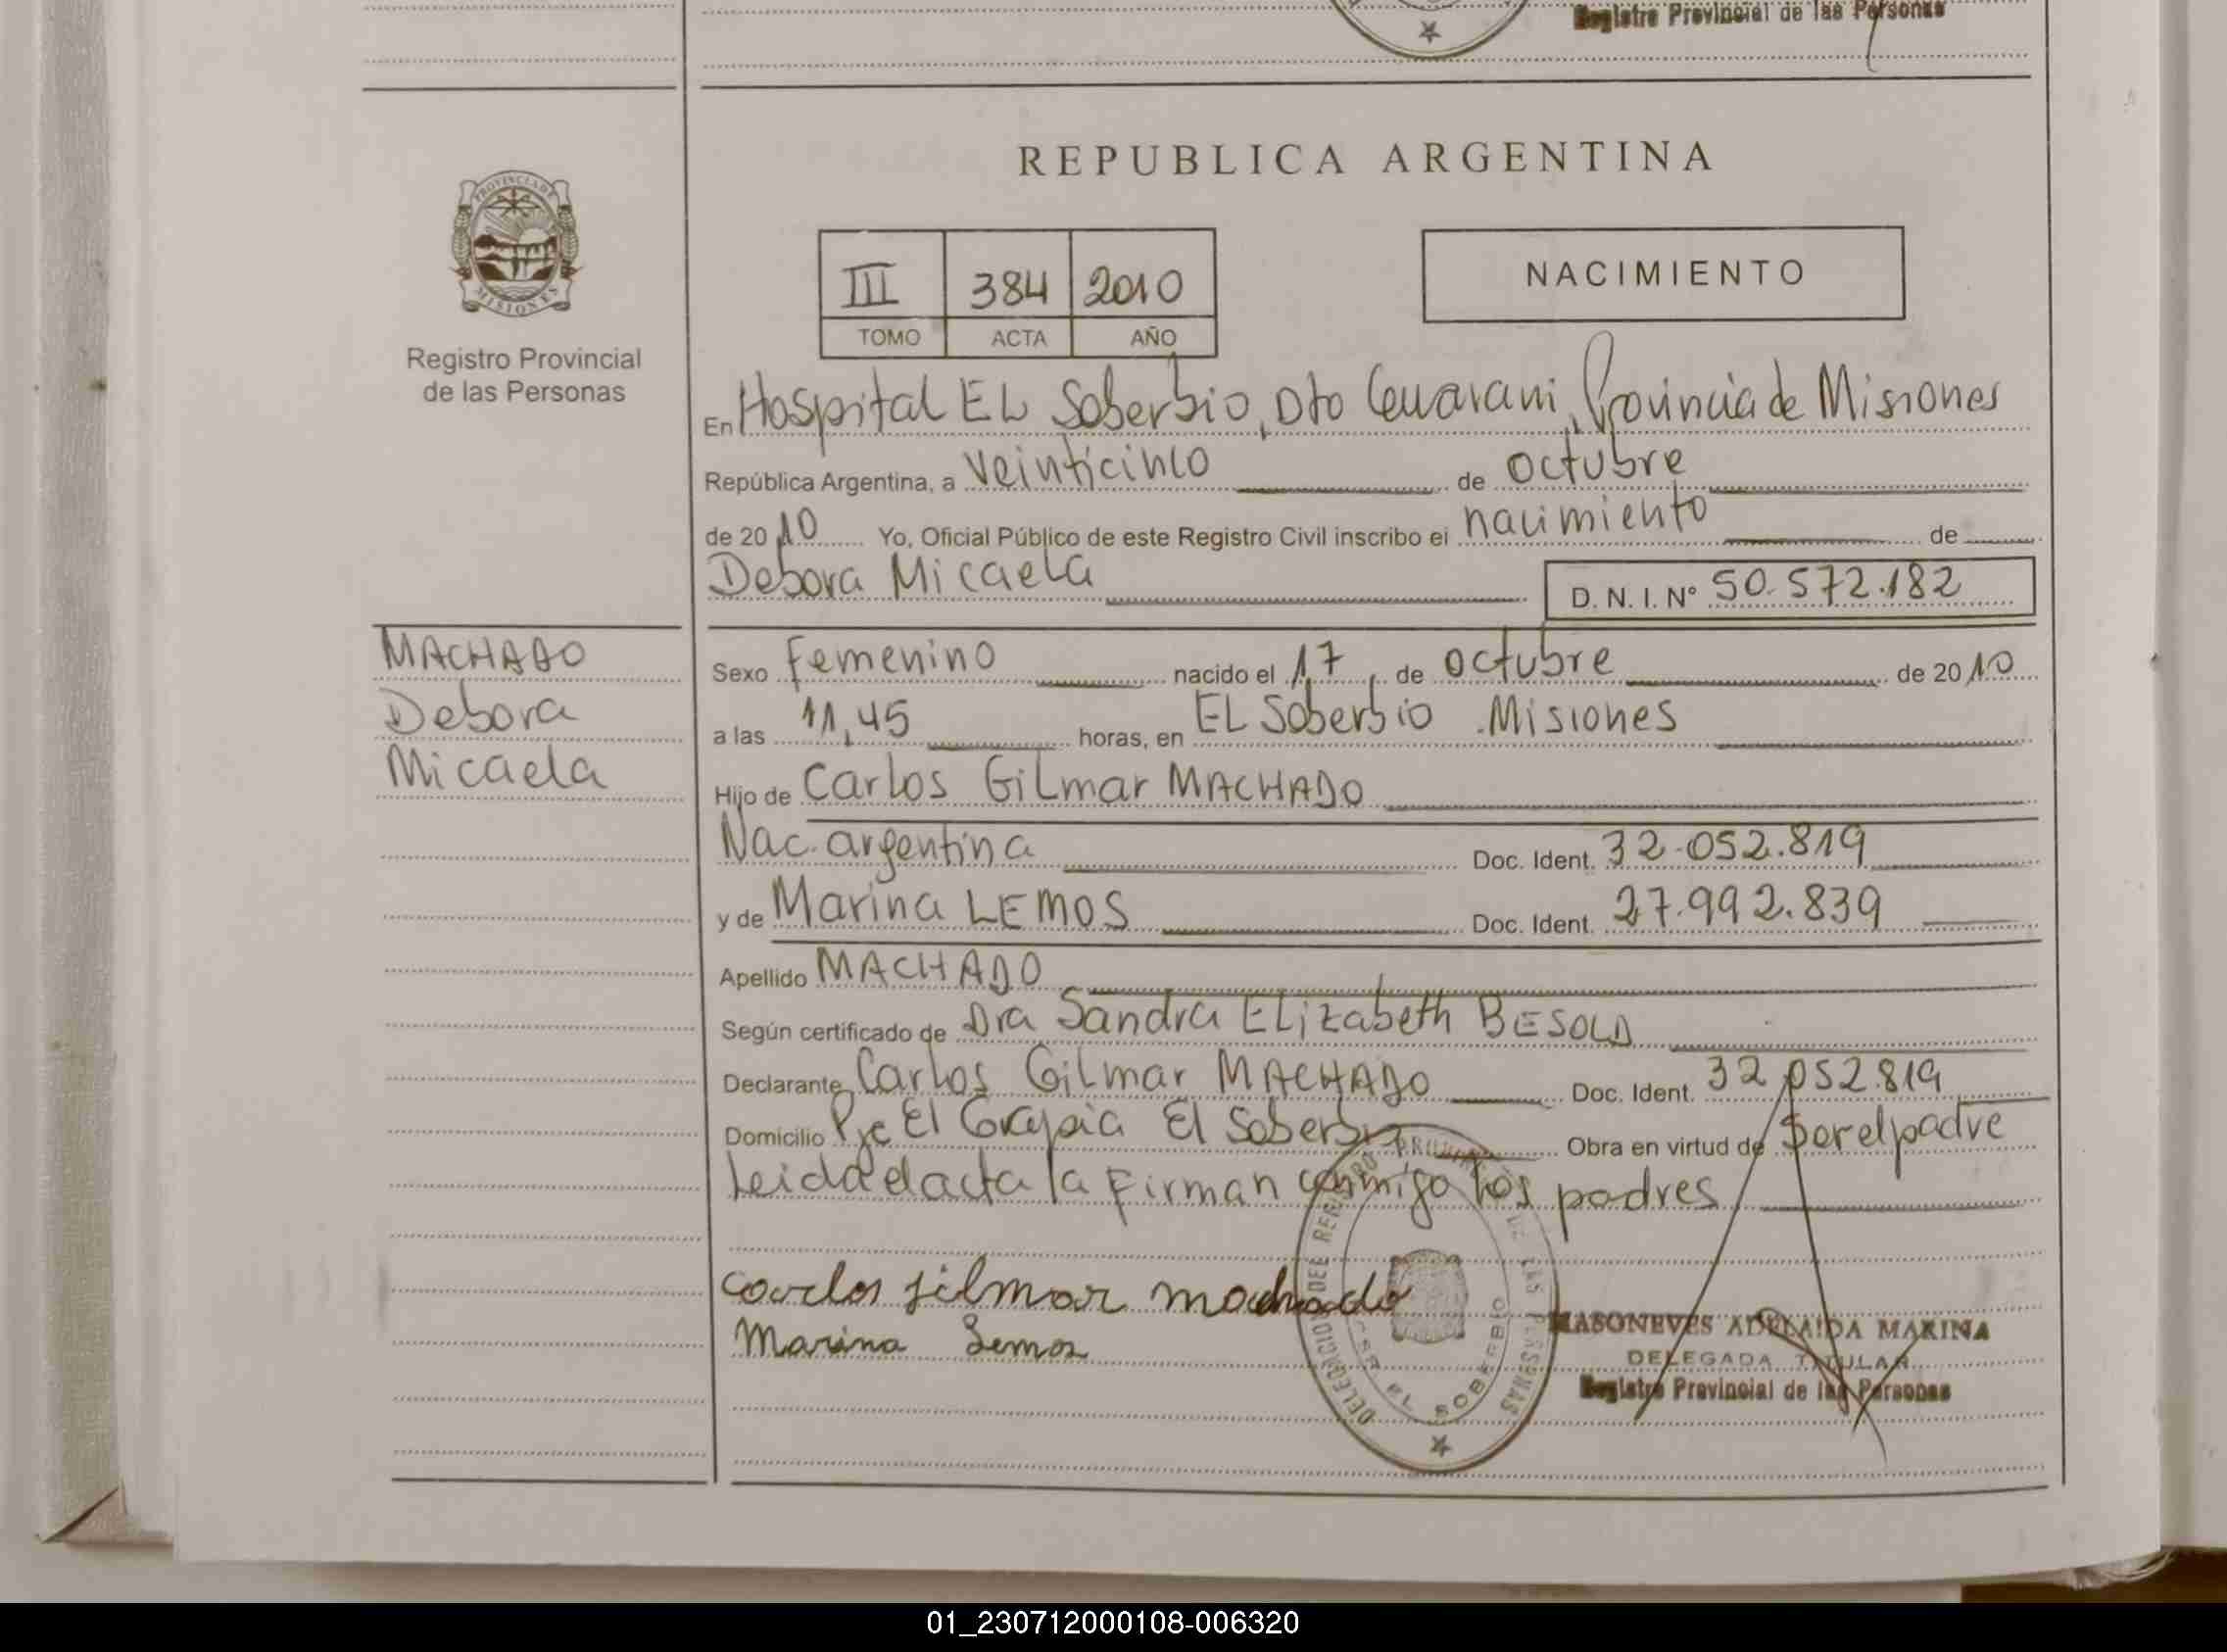 Registro Provincial de las Personas
REPUBLICA ARGENTINA
PROVINCIA DE
MISIONES
Registro Provincial
de las Personas
III 384 2010
TOMO ACTA AÑO
NACIMIENTO
En Hospital EL Soberbio, Dto Guarani, Provincia de Misiones
República Argentina, a veinticinco de octubre
de 2010 Yo, Oficial Público de este Registro Civil inscribo el nacimiento de
Debora Micaela D. N. I. Nº 50.572.182
MACHADO
Debora
Micaela
Sexo Femenino nacido el 17 de octubre de 2010
a las 11,45 horas, en EL Soberbio Misiones
Hijo de Carlos Gilmar MACHADO
Nac. argentina Doc. Ident. 32.052.819
y de Marina LEMOS Doc. Ident. 27.992.839
Apellido MACHADO
Según certificado de Dra Sandra Elizabeth BESOLD
Declarante Carlos Gilmar MACHADO Doc. Ident. 32.052.819
Domicilio Pje El Soberbio Obra en virtud de Ser el padre
Leida el acta la Firman conmigo los padres
carlos gilmar machado
Marina Lemos
MASONEVES ADELAIDA MARINA
DELEGADA TITULAR
Registro Provincial de las Personas
EL SOBERBIO
01_230712000108-006320